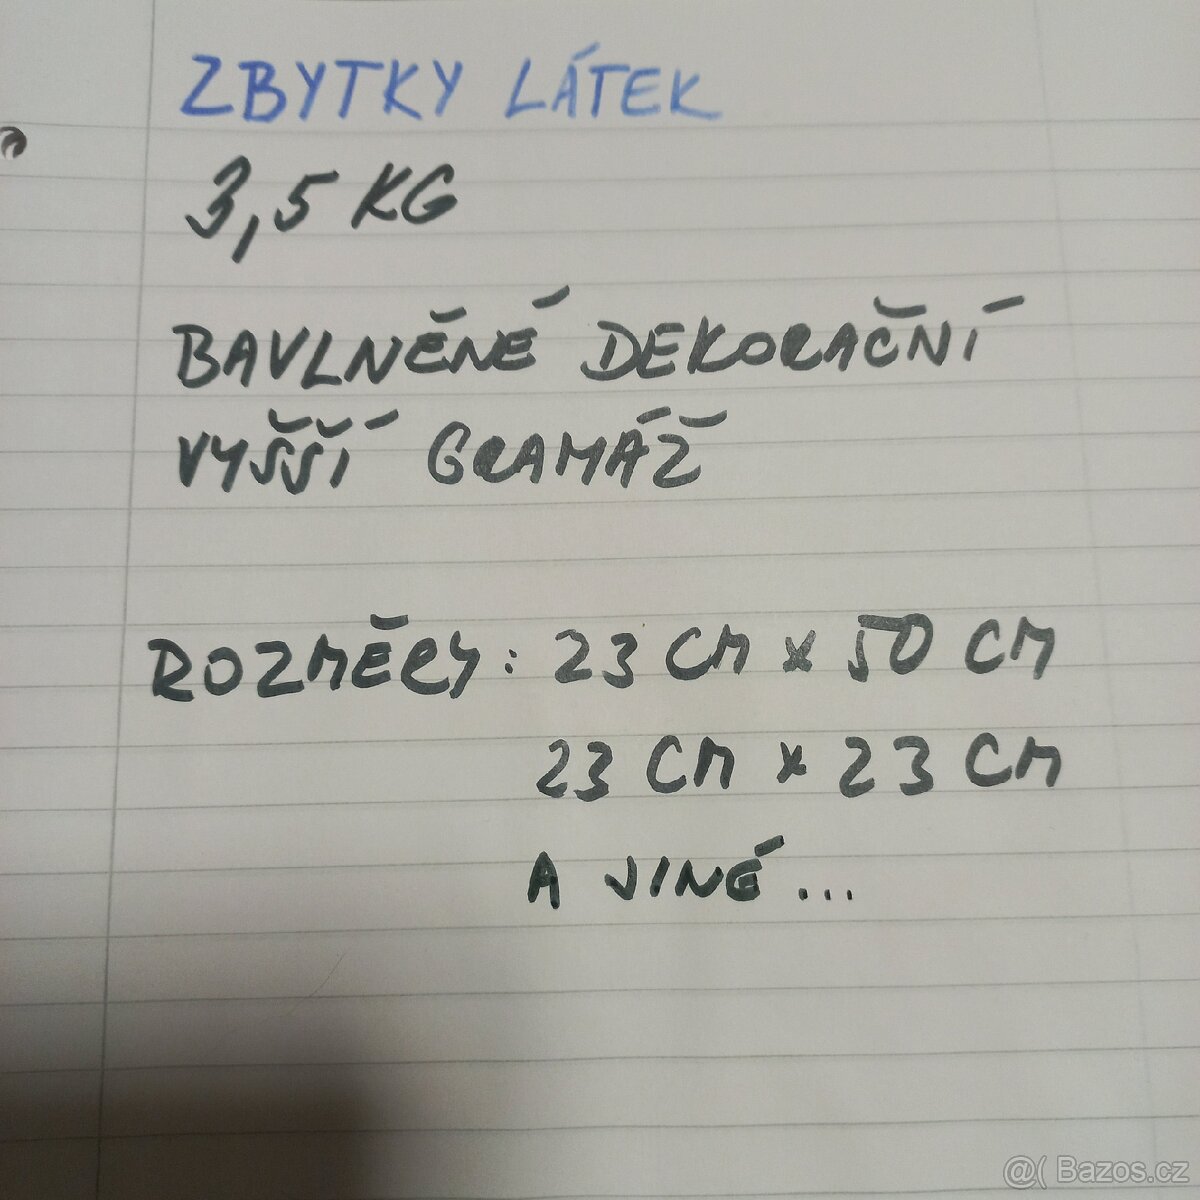 ZBYTKY LÁTEK
3,5 KG
BAVLNĚNÉ DEKORAČNÍ
VYŠŠÍ GRAMÁŽ
ROZMĚRY: 23 CM x 50 CM
23 CM x 23 CM
A JINÉ...
@( Bazos.cz